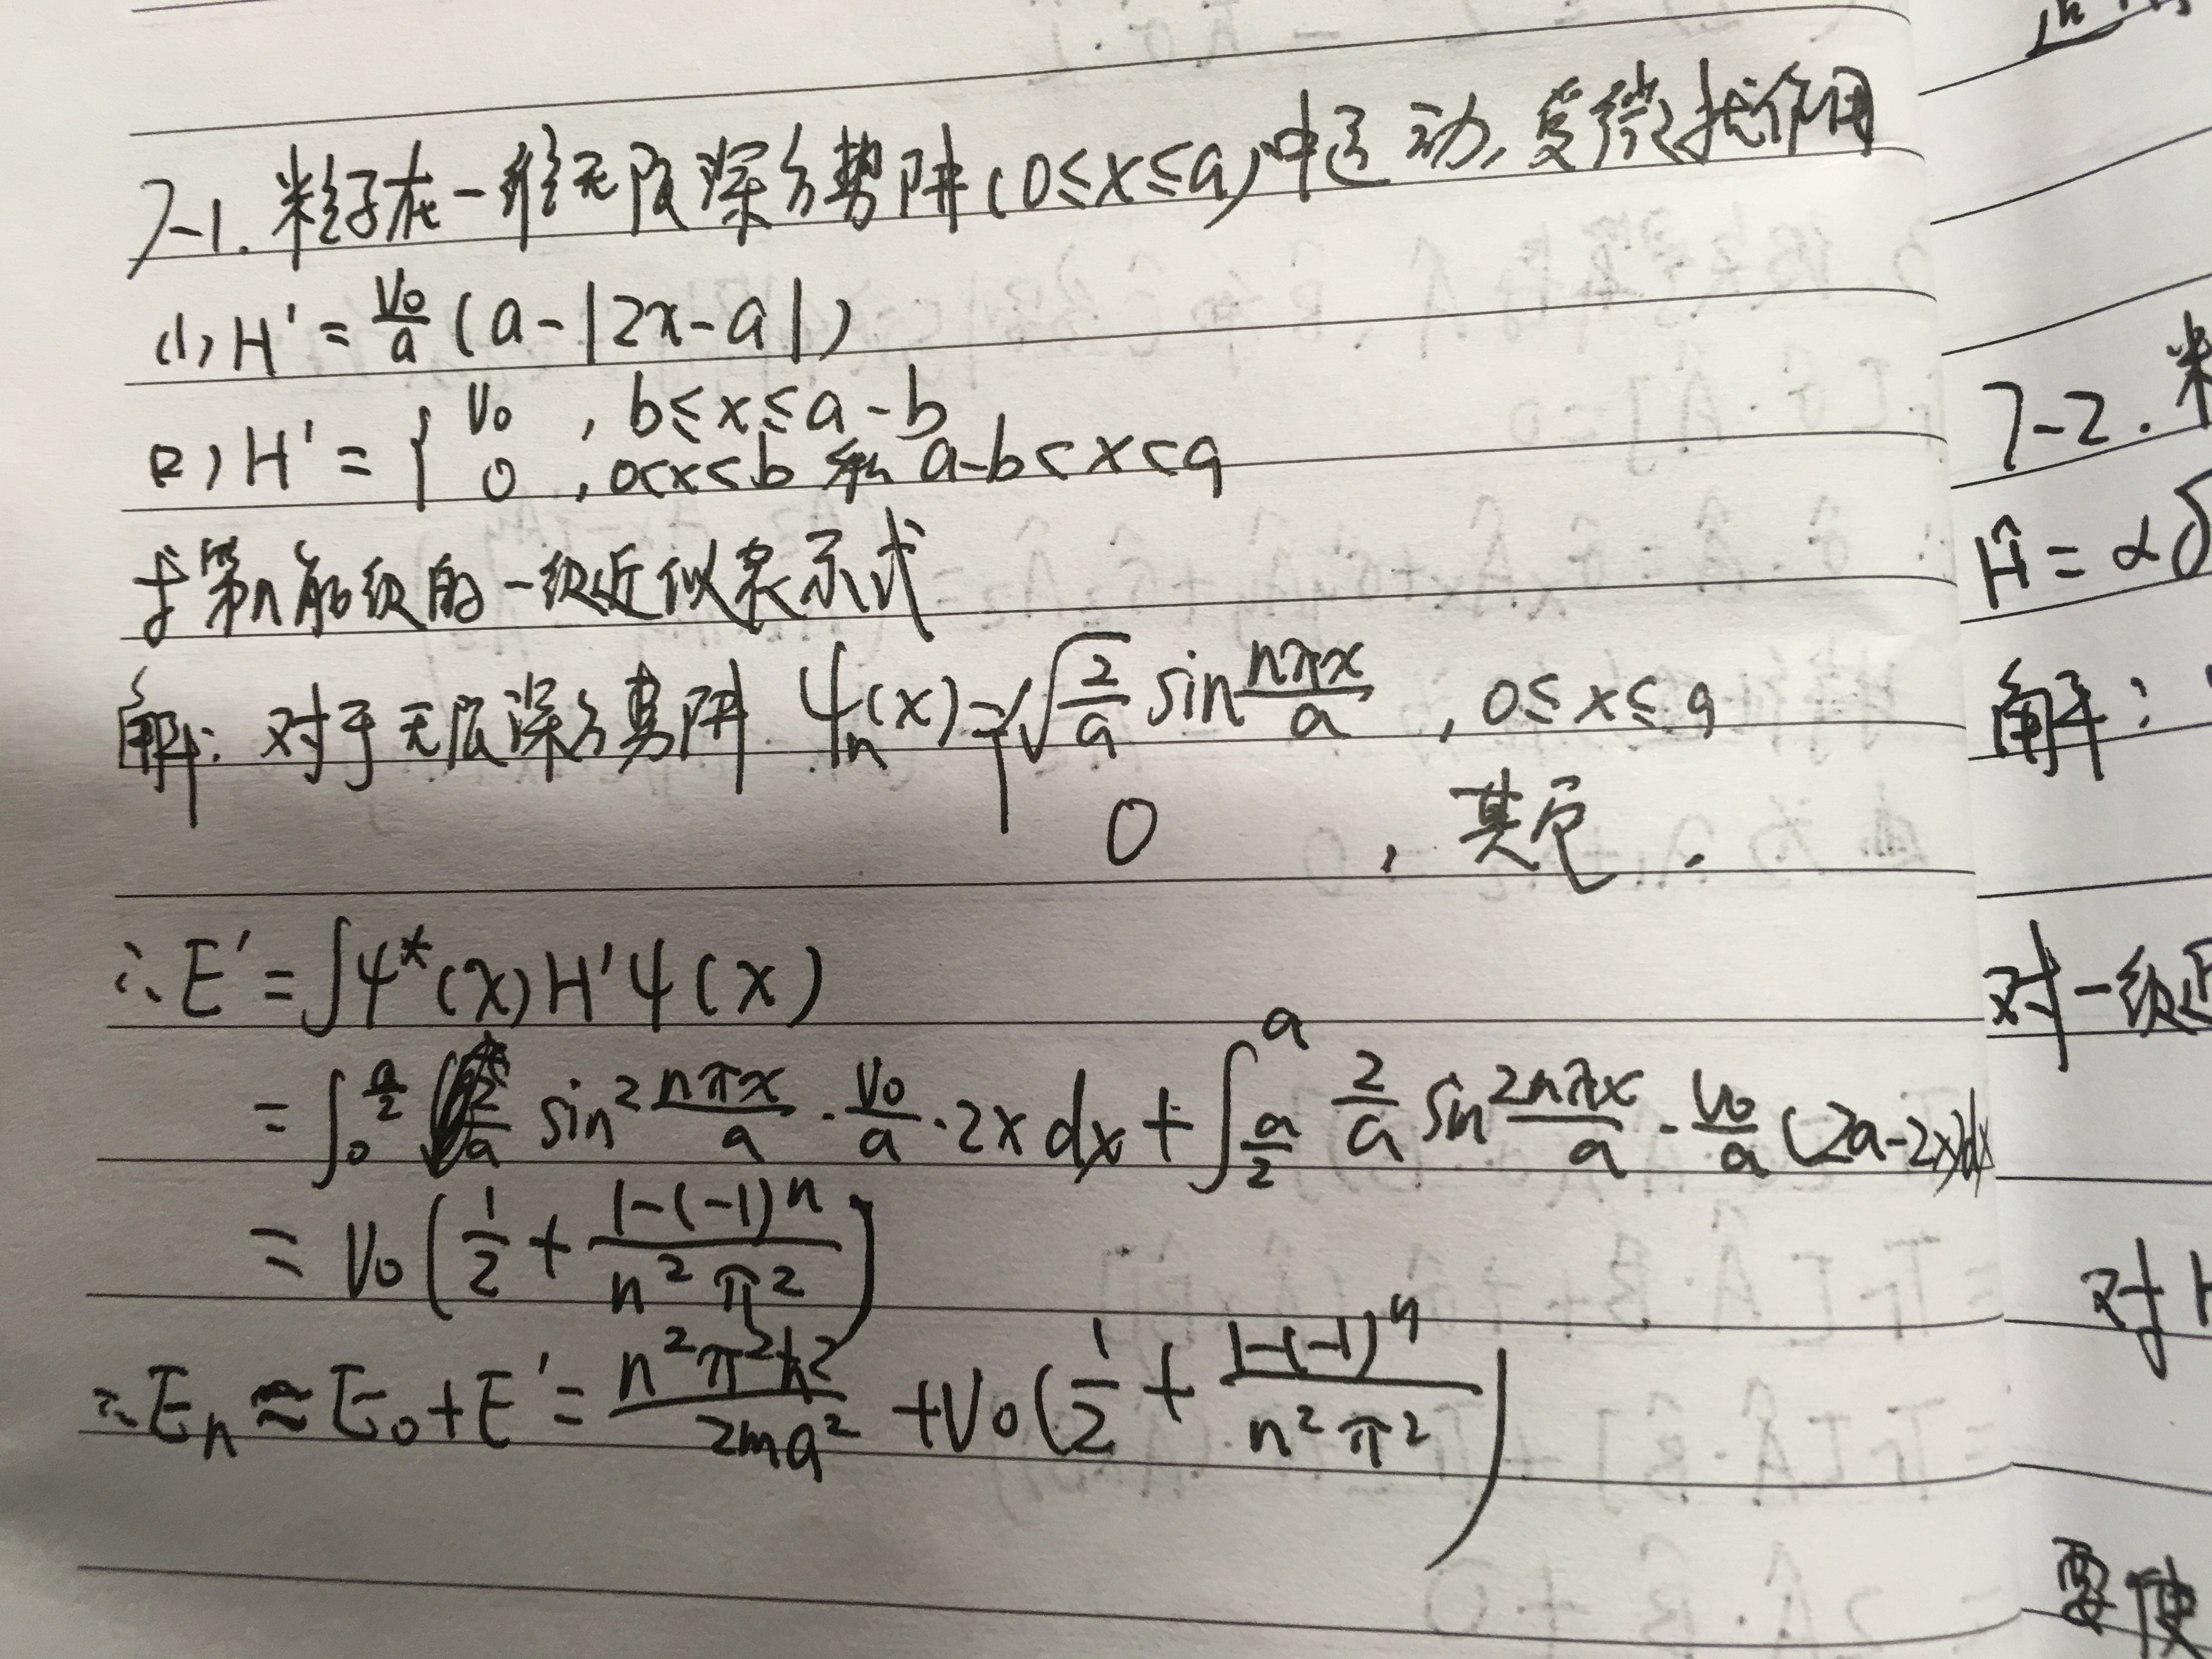 7-1. 粒子在一维无限深方势阱(0≤x≤a)中运动,受微扰作用
(1) H' = V₀/a (a-|2x-a|)
(2) H' = { V₀ , b≤x≤a-b
0 , 0<x<b 和 a-b<x<a
求第n能级的一级近似表示式
解: 对于无限深方势阱 ψₙ(x) = { √(2/a) sin nπx/a , 0≤x≤a
0 , 其它.
∴E' = ∫ψ*(x)H'ψ(x)
= ∫₀^(a/2) 2/a sin² nπx/a · V₀/a · 2x dx + ∫_(a/2)^a 2/a sin² nπx/a · V₀/a (2a-2x)dx
= V₀(1/2 + (1-(-1)ⁿ)/(n²π²))
∴Eₙ ≈ E₀+E' = n²π²ħ²/2ma² + V₀(1/2 + (1-(-1)ⁿ)/(n²π²))
7-2. 
Ĥ = αδ
解:
对一级近
对H
要使